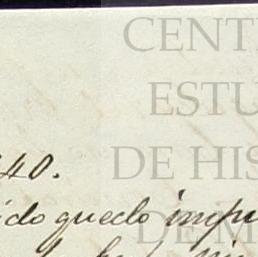 CENT
ESTU
DE HIS
DE M
40.
ido quedo impu